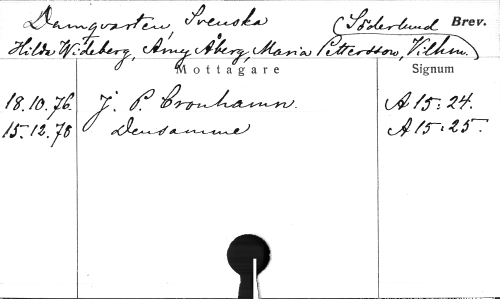 Damqvarten, Svenska (Söderlund Brev.
Hilda Wideberg, Amy Åberg, Maria Pettersson, Vilhm.)
Mottagare Signum
18.10.76. J. P. Cronhamn. A 15:24.
15.12.78 Densamme A 15:25.